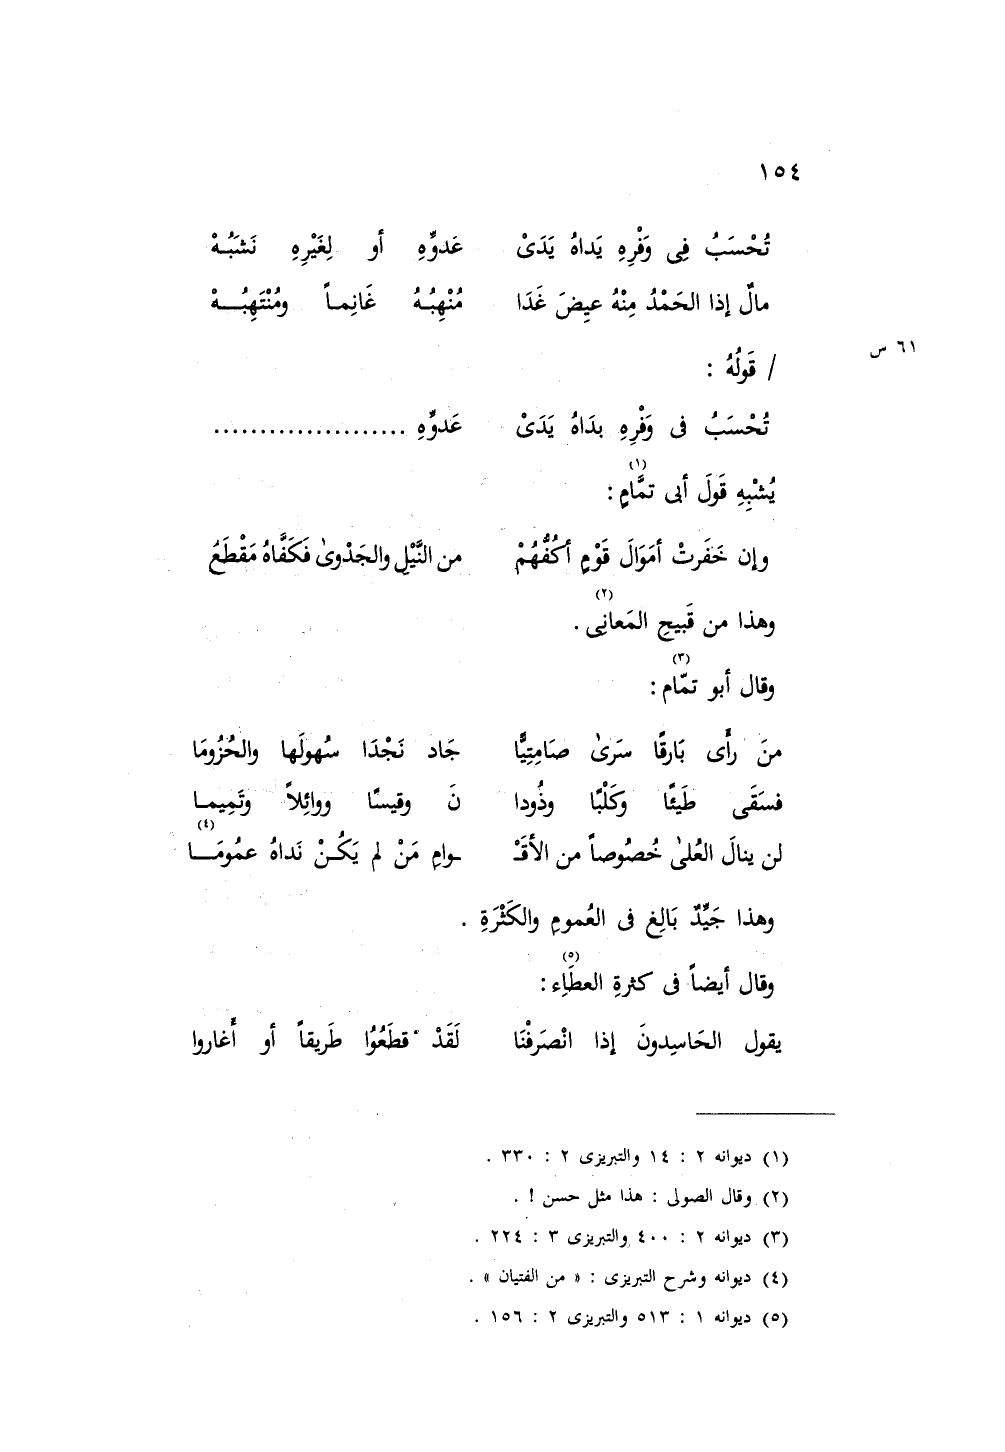 ١٥٤
تُحْسَبُ فِى وَفْرِهِ يَداهُ يَدَىْ عَدوِّهِ أو لِغَيْرِهِ نَشَبُـهْ
مالٌ إذا الحَمْدُ مِنْهُ عيِضَ غَدَا مُنْهِبُـهُ غَانِمـاً ومُنْتَهِبُـــهْ
٦١ س
/ قَولُهُ :
تُحْسَبُ فى وَفْرِهِ بدَاهُ يَدَىْ عَدوِّهِ .....................
يُشْبِهِ قَولَ أبى تمَّامٍ(١) :
وإن خَفَرتْ أمَوَالَ قَوْمٍ أكُفُّهُمْ من النَّيْلِ والجَدْوىٰ فَكَفَّاهُ مَقْطَعُ
وهذا من قَبيحِ المَعانِى(٢) .
وقال أبو تمّام(٣) :
منَ رأَى بَارقًا سَرىٰ صامِتِيًّا جَاد نَجْدَا سُهولَها والحُزُومَا
فسَقَى طَيئًا وكَلْبًا وذُودا نَ وقيسًا ووائِلاً وتَمِيمـا
لن ينالَ العُلىٰ خُصُوصاً من الأقَـْ ـوامِ مَنْ لم يَكُـنْ نَداهُ عمُومَـــا(٤)
وهذا جَيِّدٌ بَالِغ فى العُمومِ والكَثْرَةِ .
وقال أيضاً فى كثرةِ العطَاِء(٥) :
يقول الحَاسِدونَ إذا انْصَرفْنَا لَقَدْ قطَعُوُا طَريقاً أو أَغاروا
(١) ديوانه ٢ : ١٤ والتبريزى ٢ : ٣٣٠ .
(٢) وقال الصولى : هذا مثل حسن ! .
(٣) ديوانه ٢ : ٤٠٠ والتبريزى ٣ : ٢٢٤ .
(٤) ديوانه وشرح التبريزى : « من الفتيان » .
(٥) ديوانه ١ : ٥١٣ والتبريزى ٢ : ١٥٦ .